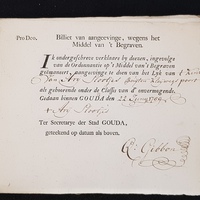 Pro Deo. Billiet van aangeevinge, wegens het
Middel van 't Begraven.
Ik ondergeschreve verklaare by deesen, ingevolge
van de Ordonnantie op 't Middel van 't Begraven
geëmaneert, aangeevinge te doen van het Lyk van 't Kind
van Arij
als gehoorende onder de Classis van d' onvermogende.
Gedaan binnen GOUDA den 22
Ter Secretarye der Stad GOUDA,
geteekend op datum als boven.